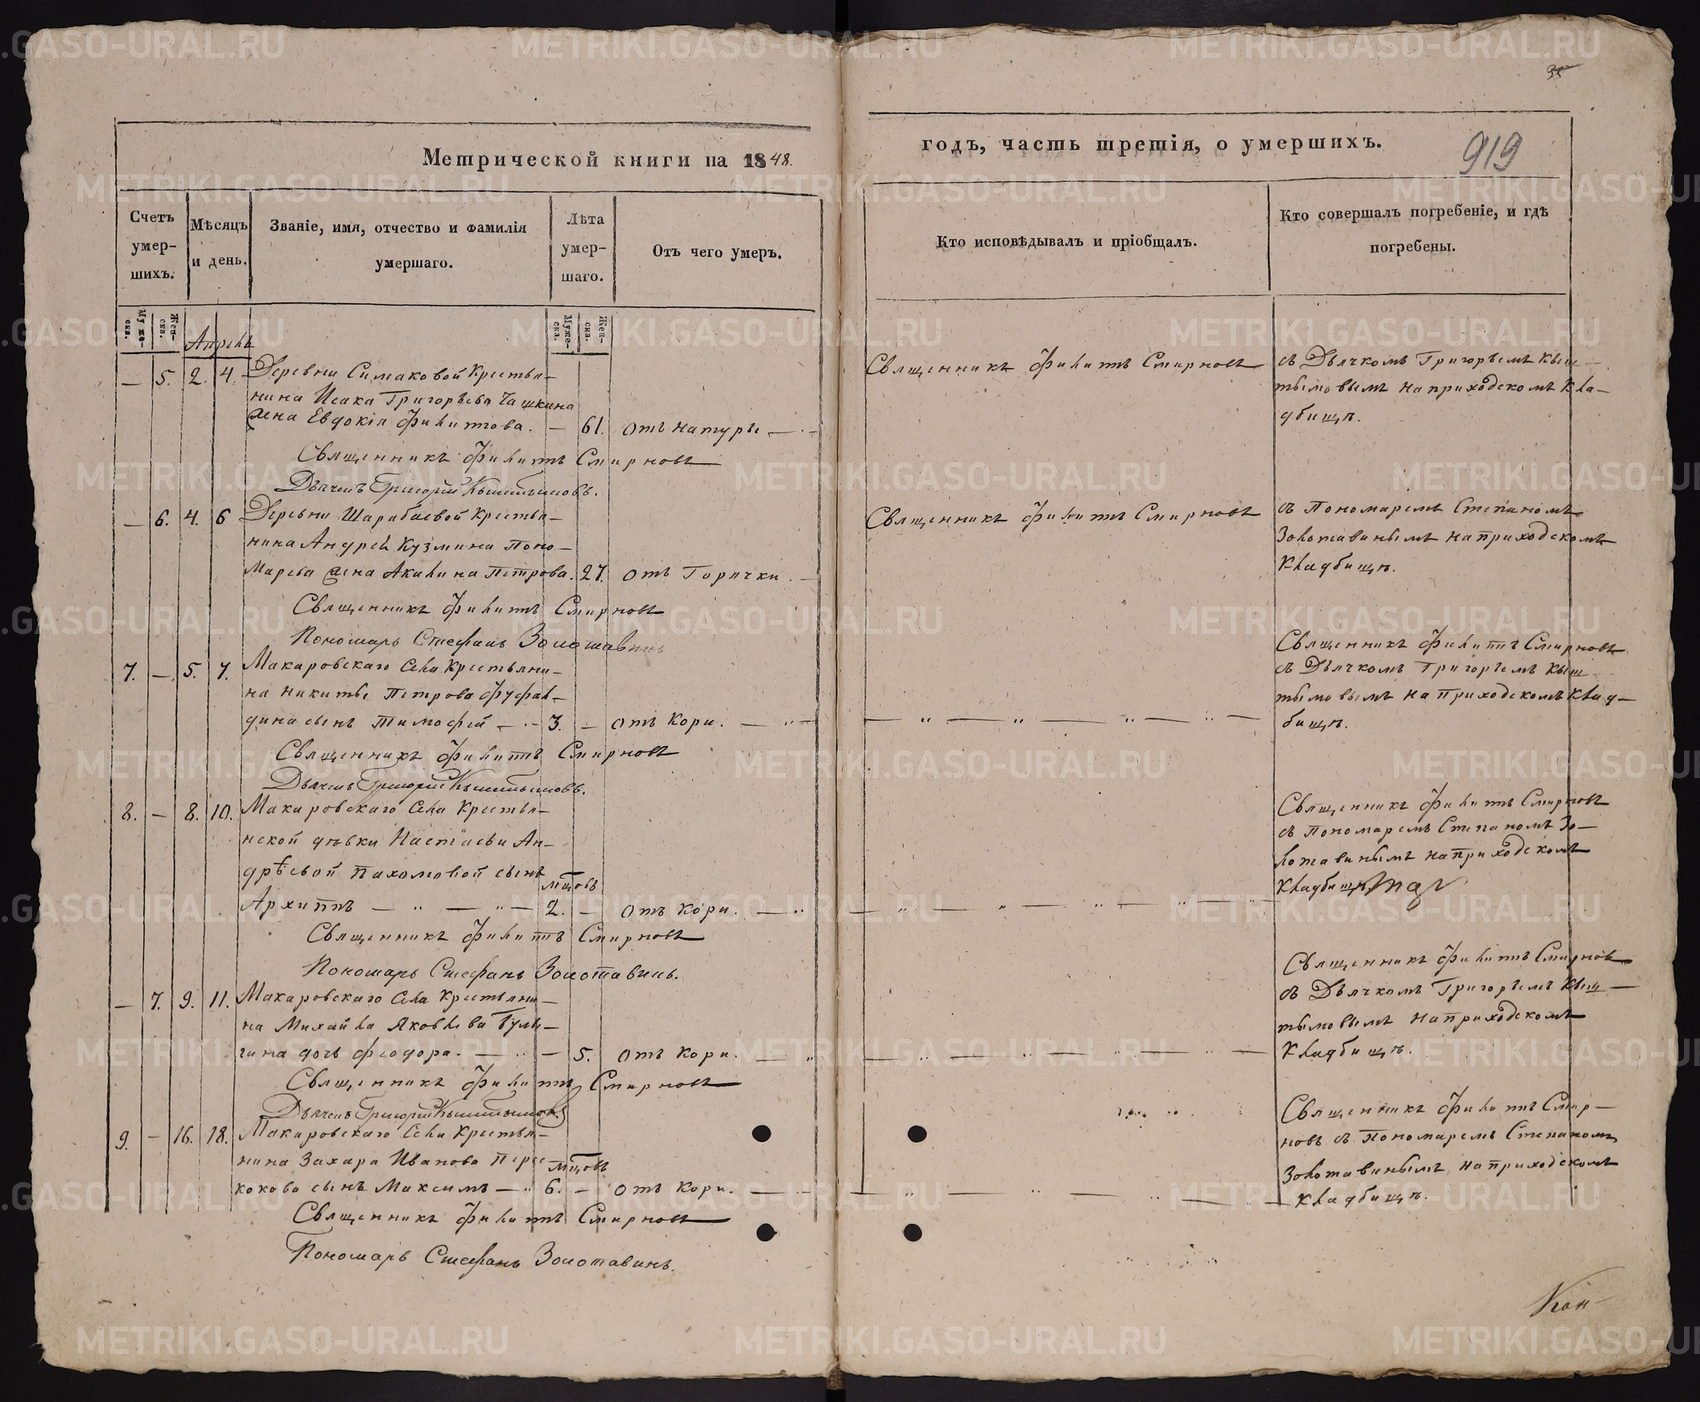 35
Метрической книги на 1848.
годъ, часть третія, о умершихъ.
919
Счетъ умер-шихъ.
Мѣсяцъ и день.
Званіе, имя, отчество и фамилія умершаго.
Лѣта умер-шаго.
Отъ чего умеръ.
Кто исповѣдывалъ и пріобщалъ.
Кто совершалъ погребеніе, и гдѣ погребены.
Муже-ска.
Жен-ска.
Муже-ска.
Жен-ска.
Апрель
— 5. 2. 4. Деревни Симаковой Крестья-
нина Исака Григорьева Чашкина
жена Евдокія Филитова. — 61. отъ натуры —
Священникъ Филитъ Смирновъ
Дьячекъ Григорій Кыштымовъ.
Священникъ Филитъ Смирновъ
съ Дьячкомъ Григорьемъ Кыш-
тымовымъ на приходскомъ кла-
дбищѣ.
— 6. 4. 6 Деревни Шарабаевой Крестья-
нина Андрея Кузмина Поно-
марева жена Акилина Петрова. 27. отъ Горячки. —
Священникъ Филитъ Смирновъ
Пономарь Стефанъ Золотавинъ
Священникъ Филитъ Смирновъ
съ Пономаремъ Степаномъ
Золотавинымъ на приходскомъ
Кладбищѣ.
7. — 5. 7. Макаровскаго Села Крестьяни-
на Никиты Петрова Фуфал-
дина сынъ Тимофей — 3. — отъ Кори. —
Священникъ Филитъ Смирновъ
Дьячекъ Григорій Кыштымовъ.
Священникъ Филитъ Смирновъ
съ Дьячкомъ Григорьемъ Кыш-
тымовымъ на приходскомъ клад-
бищѣ.
8. — 8. 10. Макаровскаго Села Крестья-
нской дѣвки Настасьи Ан-
дрѣевой Пахомовой сынъ
мцовъ
Архиппъ — 2. — отъ Кори. —
Священникъ Филитъ Смирновъ
Пономарь Стефанъ Золотавинъ.
Священникъ Филитъ Смирновъ
съ Пономаремъ Степаномъ Зо-
лотавинымъ на приходскомъ
Кладбищѣ
— 7. 9. 11. Макаровскаго Села Крестьяни-
на Михайла Яковлева Гуль-
гина дочь Феодора. — 5. отъ Кори. —
Священникъ Филитъ Смирновъ
Дьячекъ Григорій Кыштымовъ
Священникъ Филитъ Смирновъ
съ Дьячкомъ Григорьемъ Кыш-
тымовымъ на приходскомъ
Кладбищѣ.
9. — 16. 18. Макаровскаго Села Крестья-
нина Захара Иванова Пере-
мцовъ
кокова сынъ Максимъ — 6. — отъ Кори. —
Священникъ Филитъ Смирновъ
Пономарь Стефанъ Золотавинъ.
Священникъ Филитъ Смир-
новъ съ Пономаремъ Степаномъ
Золотавинымъ на приходскомъ
Кладбищѣ.
METRIKI.GASO-URAL.RU